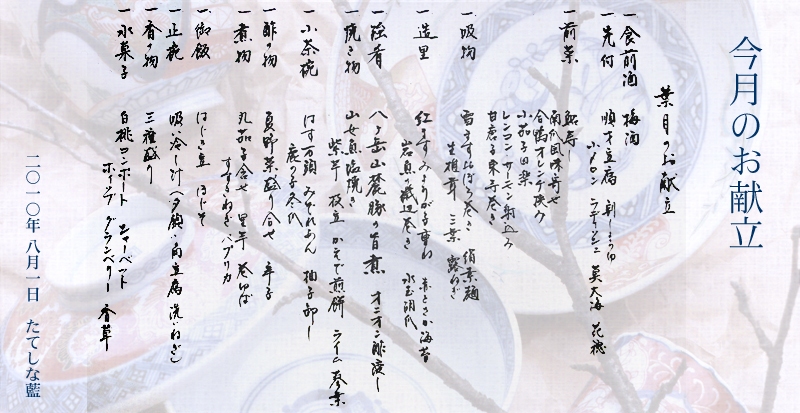 今月のお献立
葉月のお献立
一 食前酒 梅酒
一 先付 順才豆腐 刺しょうゆ
小メロン ラディッシュ 莫大海 花穂
一 前菜 鮎寿し
南瓜風味寄せ
合鴨オレンヂ挟み
小茄子田楽
レンコンサーモン射込み
甘唐子東寺巻き
一 吸物 雪ます比ばら巻き 絹素麺
生椎茸 三葉 露ねぎ
一 造里 紅ますみょうが子重ね 赤とさか海苔
岩魚の磯辺巻き 水玉胡瓜
一 強肴 八ヶ岳山麓豚の旨煮 オニオン酢浸し
一 焼き物 山女魚塩焼き
紫芋 枝豆 かえで煎餅 ライム
一 小茶碗 はす万頭 みぞれあん 柚子卸し
鹿の子巻瓜
一 酢の物 夏野菜盛り合せ 辛子
一 煮物 丸茄子含せ 里芋 巻ゆば
すすきねぎ パプリカ
一 御飯 はじき豆 ほじそ
一 止椀 吸い冷し汁(夕顔・角豆腐 洗いねぎ)
一 香の物 三種盛り
一 水菓子 白桃コンポート シャーベット
ホイップ グランベリー 香草
二〇一〇年 八月一日 たてしな藍